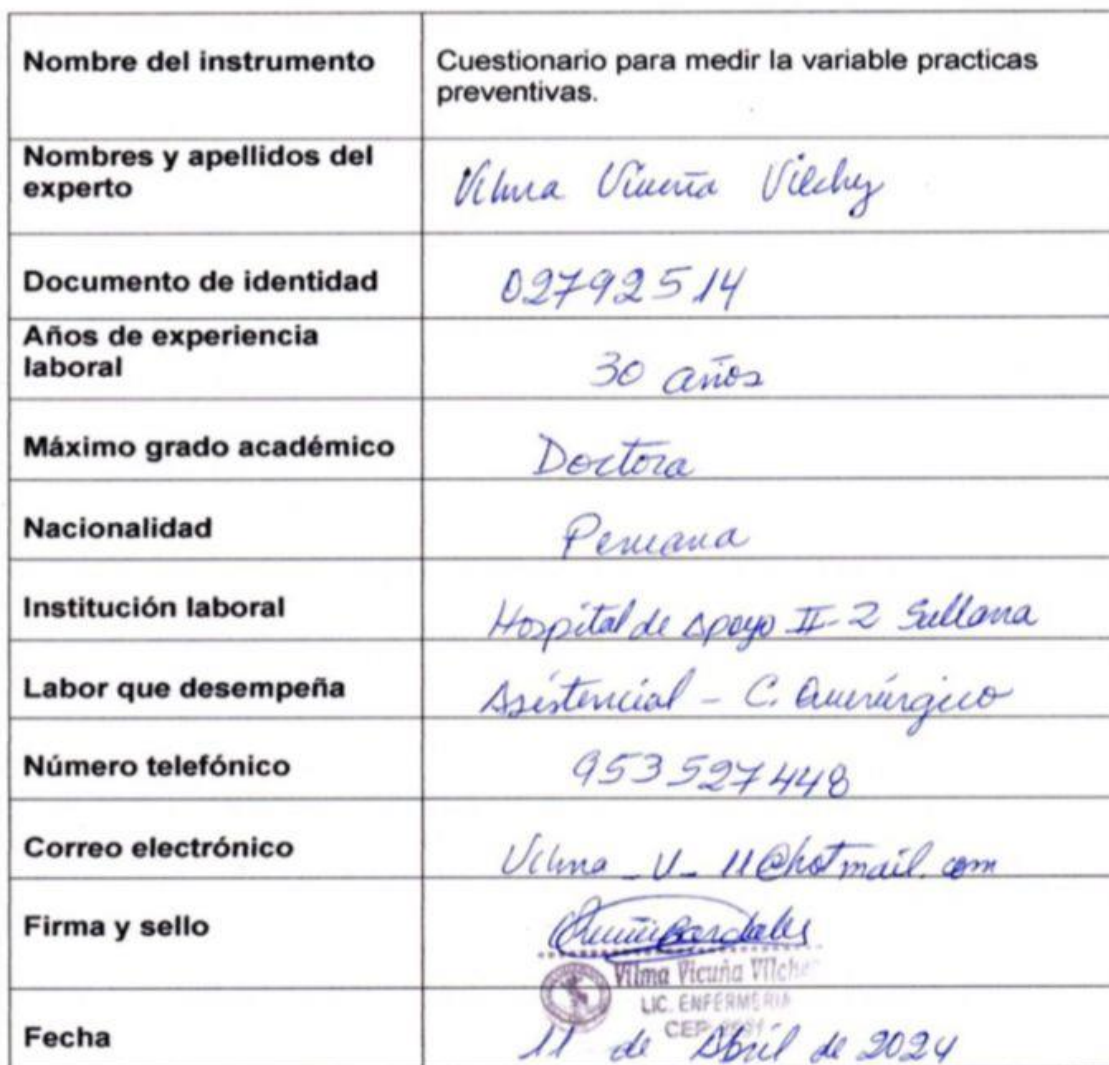 Nombre del instrumento
Cuestionario para medir la variable practicas
preventivas.
Nombres y apellidos del
experto
Vilma Vicuña Vilchez
Documento de identidad
02792514
Años de experiencia
laboral
30 años
Máximo grado académico
Doctora
Nacionalidad
Peruana
Institución laboral
Hospital de Apoyo II-2 Sullana
Labor que desempeña
Asistencial - C. Quirúrgico
Número telefónico
953527448
Correo electrónico
Vilma_V_11@hotmail.com
Firma y sello
Vilma Vicuña Vilchez
LIC. ENFERMERIA
CEP
Fecha
11 de Abril de 2024